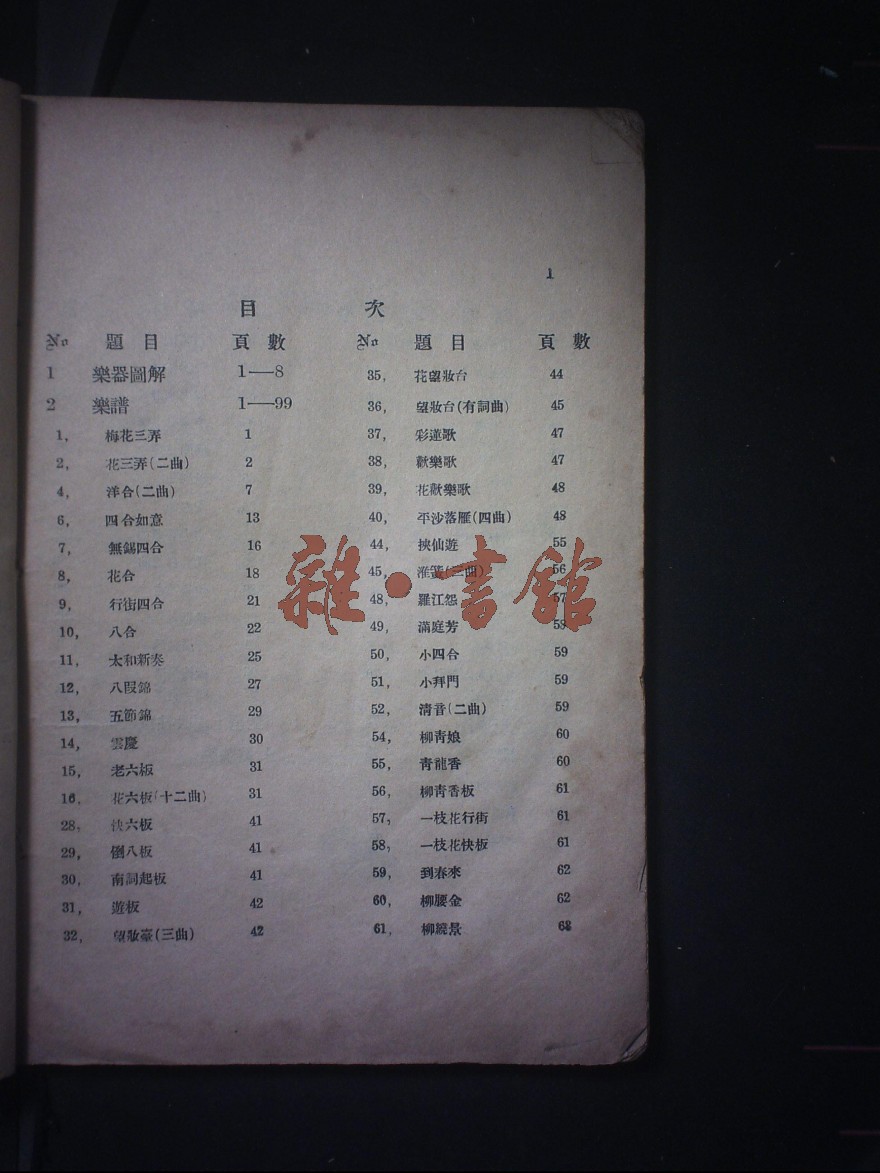 1
目 次
No 題目 頁數
1 樂器圖解 1—8
2 樂譜 1—99
1, 梅花三弄 1
2, 花三弄(二曲) 2
4, 洋合(二曲) 7
6, 四合如意 13
7, 無錫四合 16
8, 花合 18
9, 行街四合 21
10, 八合 22
11, 太和新奏 25
12, 八叚錦 27
13, 五節錦 29
14, 雲慶 30
15, 老六板 31
16, 花六板(十二曲) 31
28, 快六板 41
29, 倒八板 41
30, 南詞起板 41
31, 遊板 42
32, 望妝臺(三曲) 42
No 題目 頁數
35, 花望妝台 44
36, 望妝台(有詞曲) 45
37, 彩蓮歌 47
38, 歡樂歌 47
39, 花歡樂歌 48
40, 平沙落雁(四曲) 48
44, 挾仙遊 55
45, 淮黃(三曲) 56
48, 羅江怨 57
49, 滿庭芳 58
50, 小四合 59
51, 小拜門 59
52, 清音(二曲) 59
54, 柳青娘 60
55, 青龍香 60
56, 柳青香板 61
57, 一枝花行街 61
58, 一枝花快板 61
59, 到春來 62
60, 柳腰金 62
61, 柳繞景 63
雜·書館